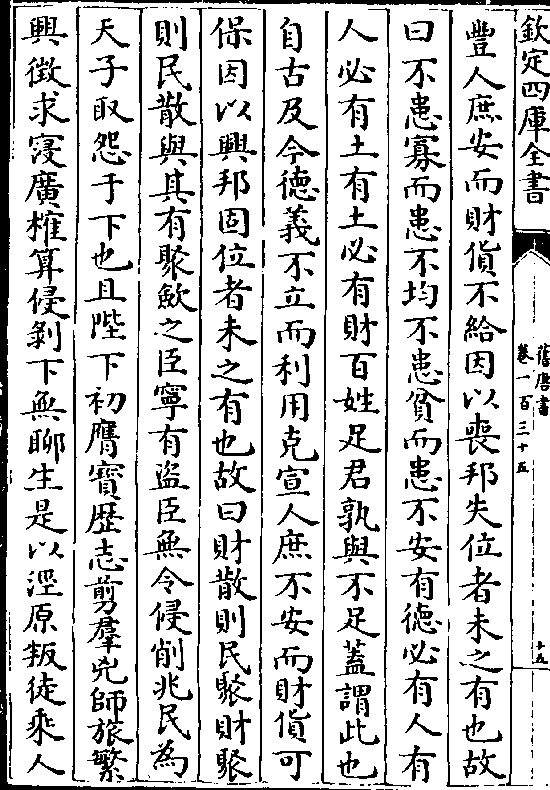 欽定四庫全書
舊唐書
卷一百三十五
十五
豐人庶安而財貨不給因以喪邦失位者未之有也故
曰不患寡而患不均不患貧而患不安有德必有人有
人必有土有土必有財百姓足君孰與不足蓋謂此也
自古及今德義不立而利用克宣人庶不安而財貨可
保因以興邦固位者未之有也故曰財散則民聚財聚
則民散與其有聚歛之臣寧有盜臣無令侵削兆民為
天子取怨于下也且陛下初膺寳歴志剪羣兇師旅繁
興徴求寖廣榷算侵剝下無聊生是以涇原叛徒乘人